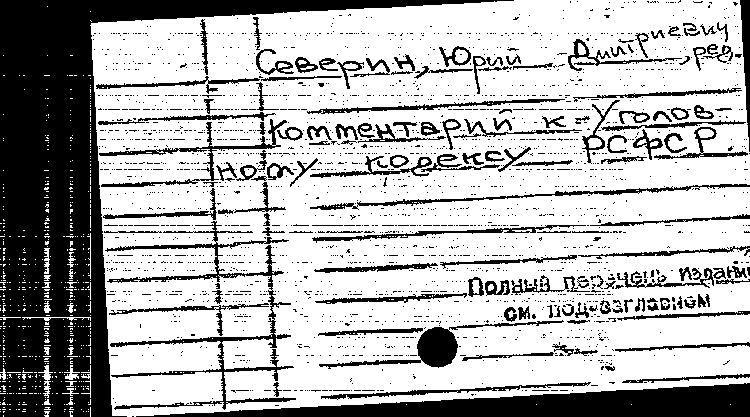 Северин, Юрий Дмитриевич, ред.
Комментарий к Уголов-
ному кодексу РСФСР.
Полный перечень издани
см. под заглавием